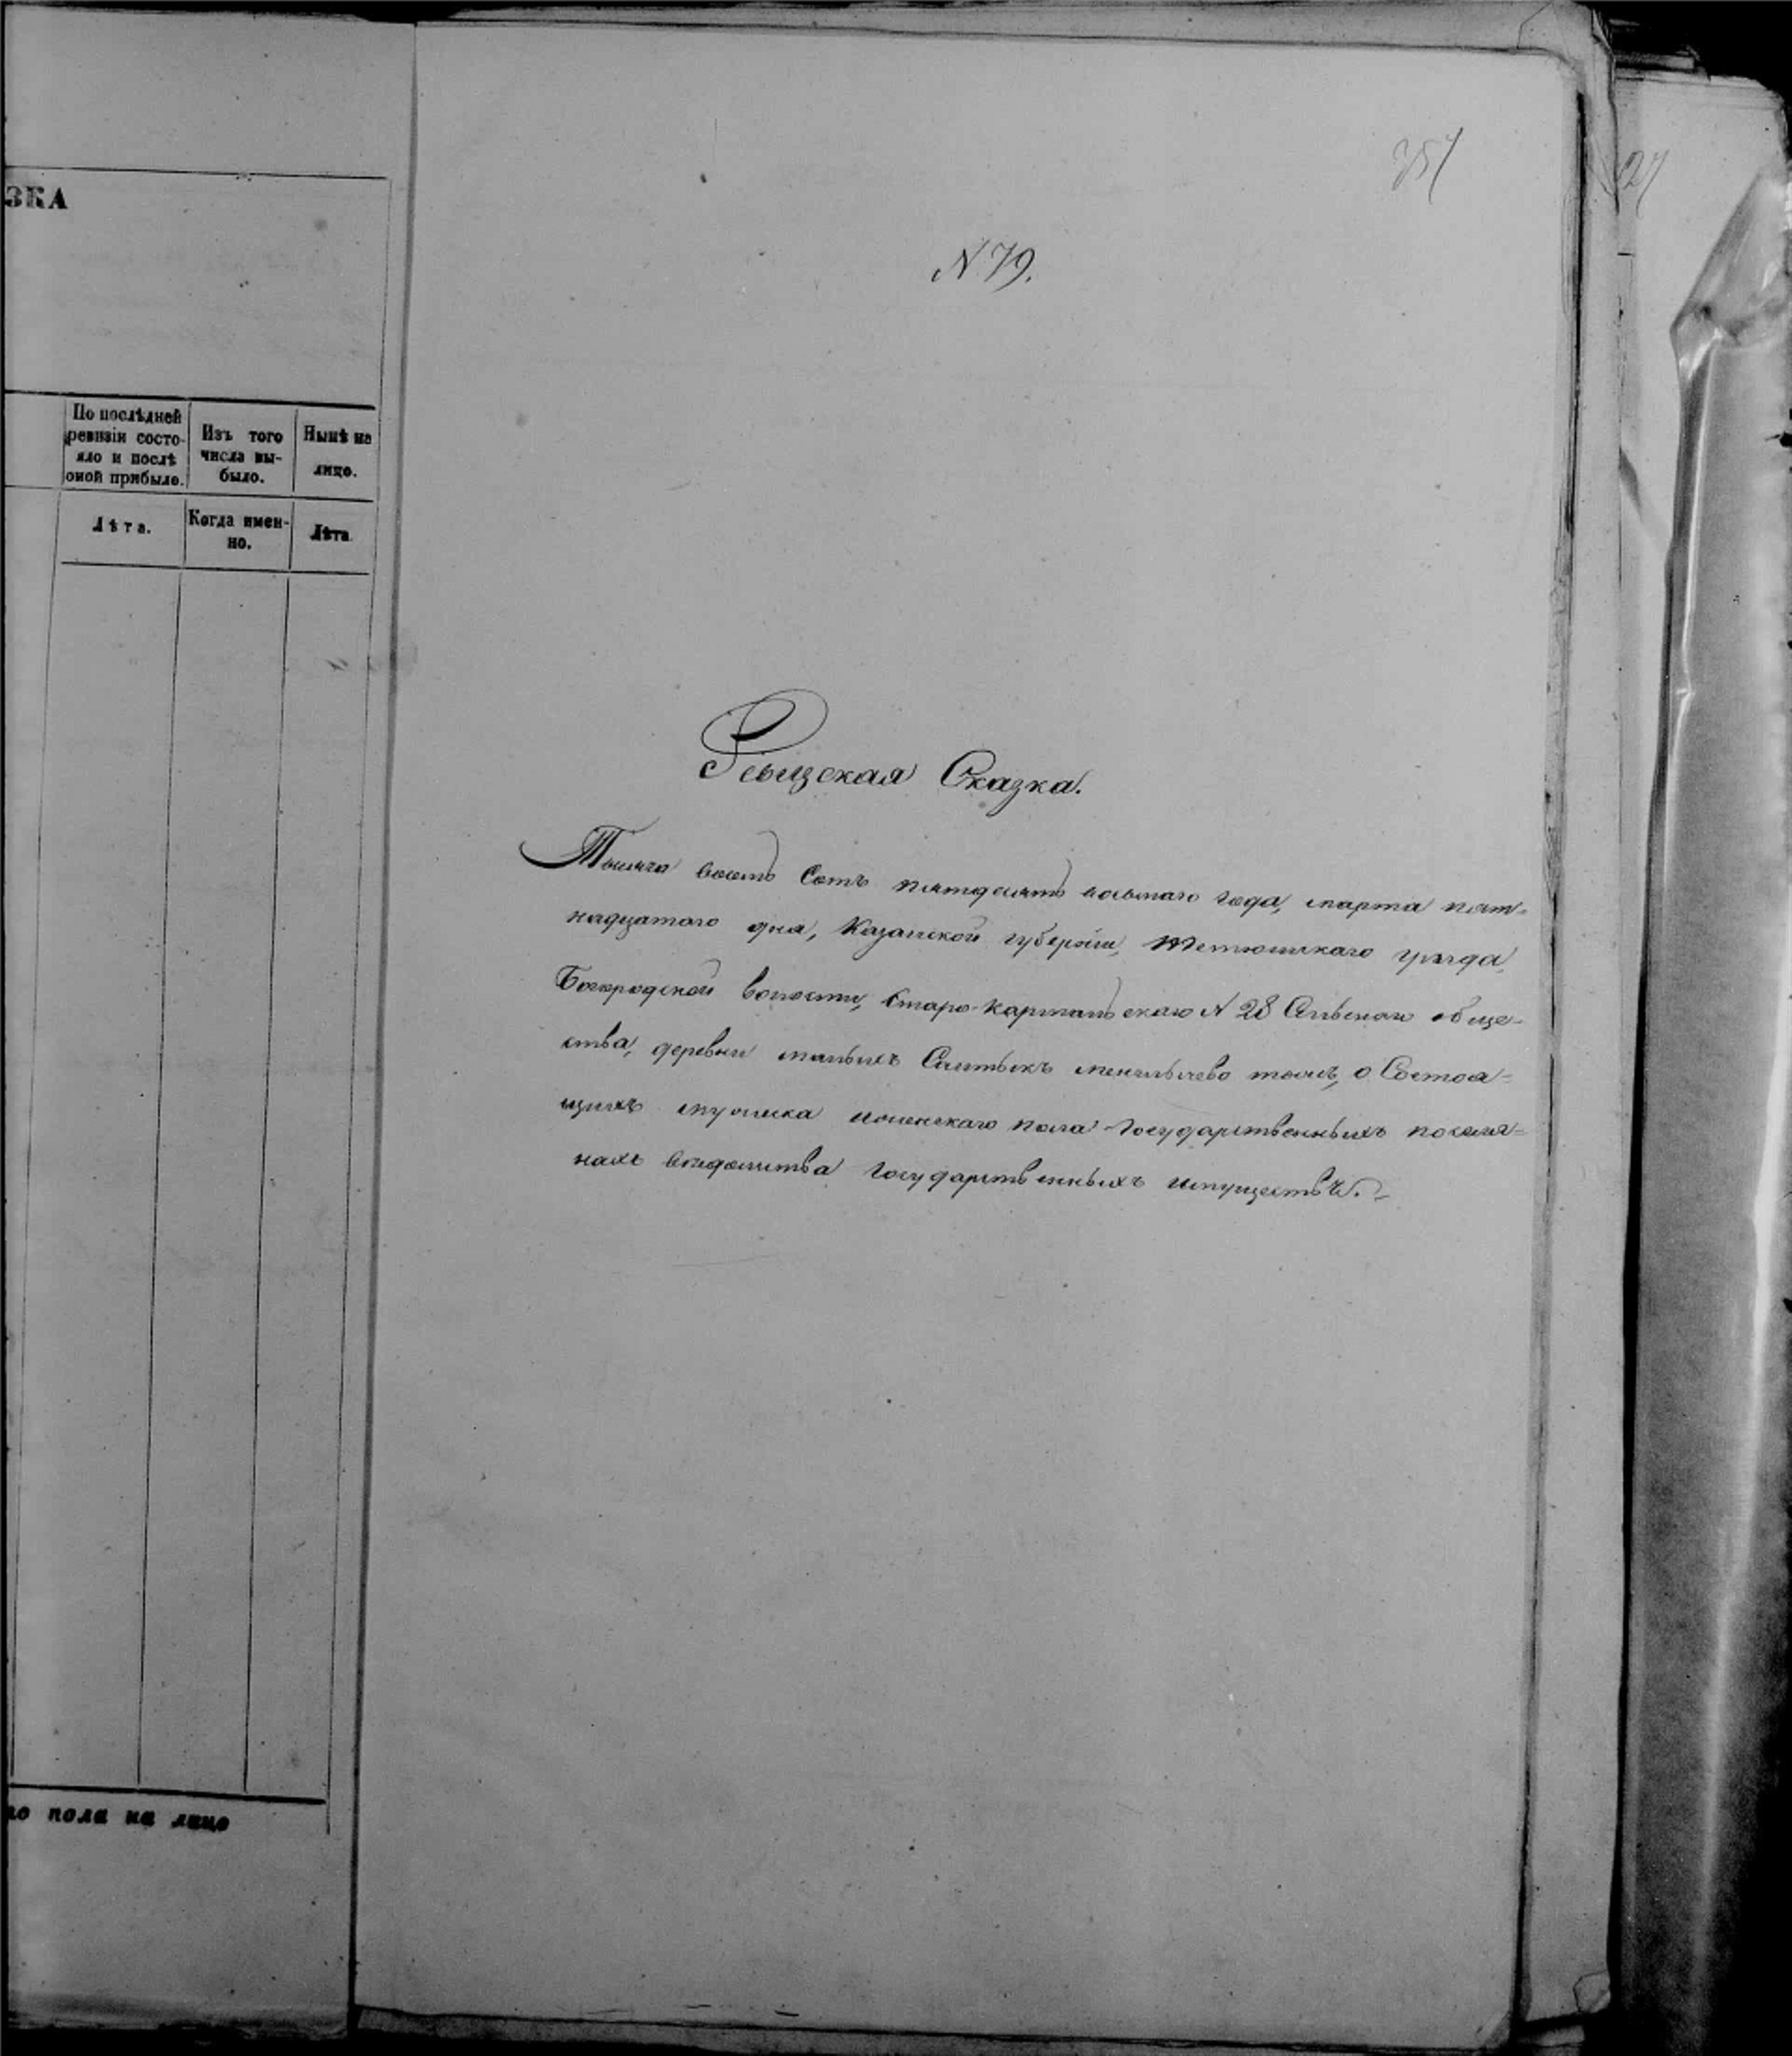 ЗКА
По послѣдней
ревизіи состо-
яло и послѣ
оной прибыло.
Изъ того
числа вы-
было.
Нынѣ на
лицо.
Лѣта.
Когда имен-
но.
Лѣта
го пола на лицо
351
N 79.
Ревизская Сказка.
Тысяча восемь Сотъ пятдесятъ восьмаго года, марта пят-
надцатаго дня, Казанской губерніи, Тетюшскаго уѣзда,
Богородской волости, Старо-Кармалъскаго N 28 Сельскаго обще-
ства, деревни малыхъ Салтыкъ тожъ, о Состоя-
щихъ мужска и женскаго пола Государственныхъ поселя-
нахъ вѣдомства Государственныхъ имуществъ.